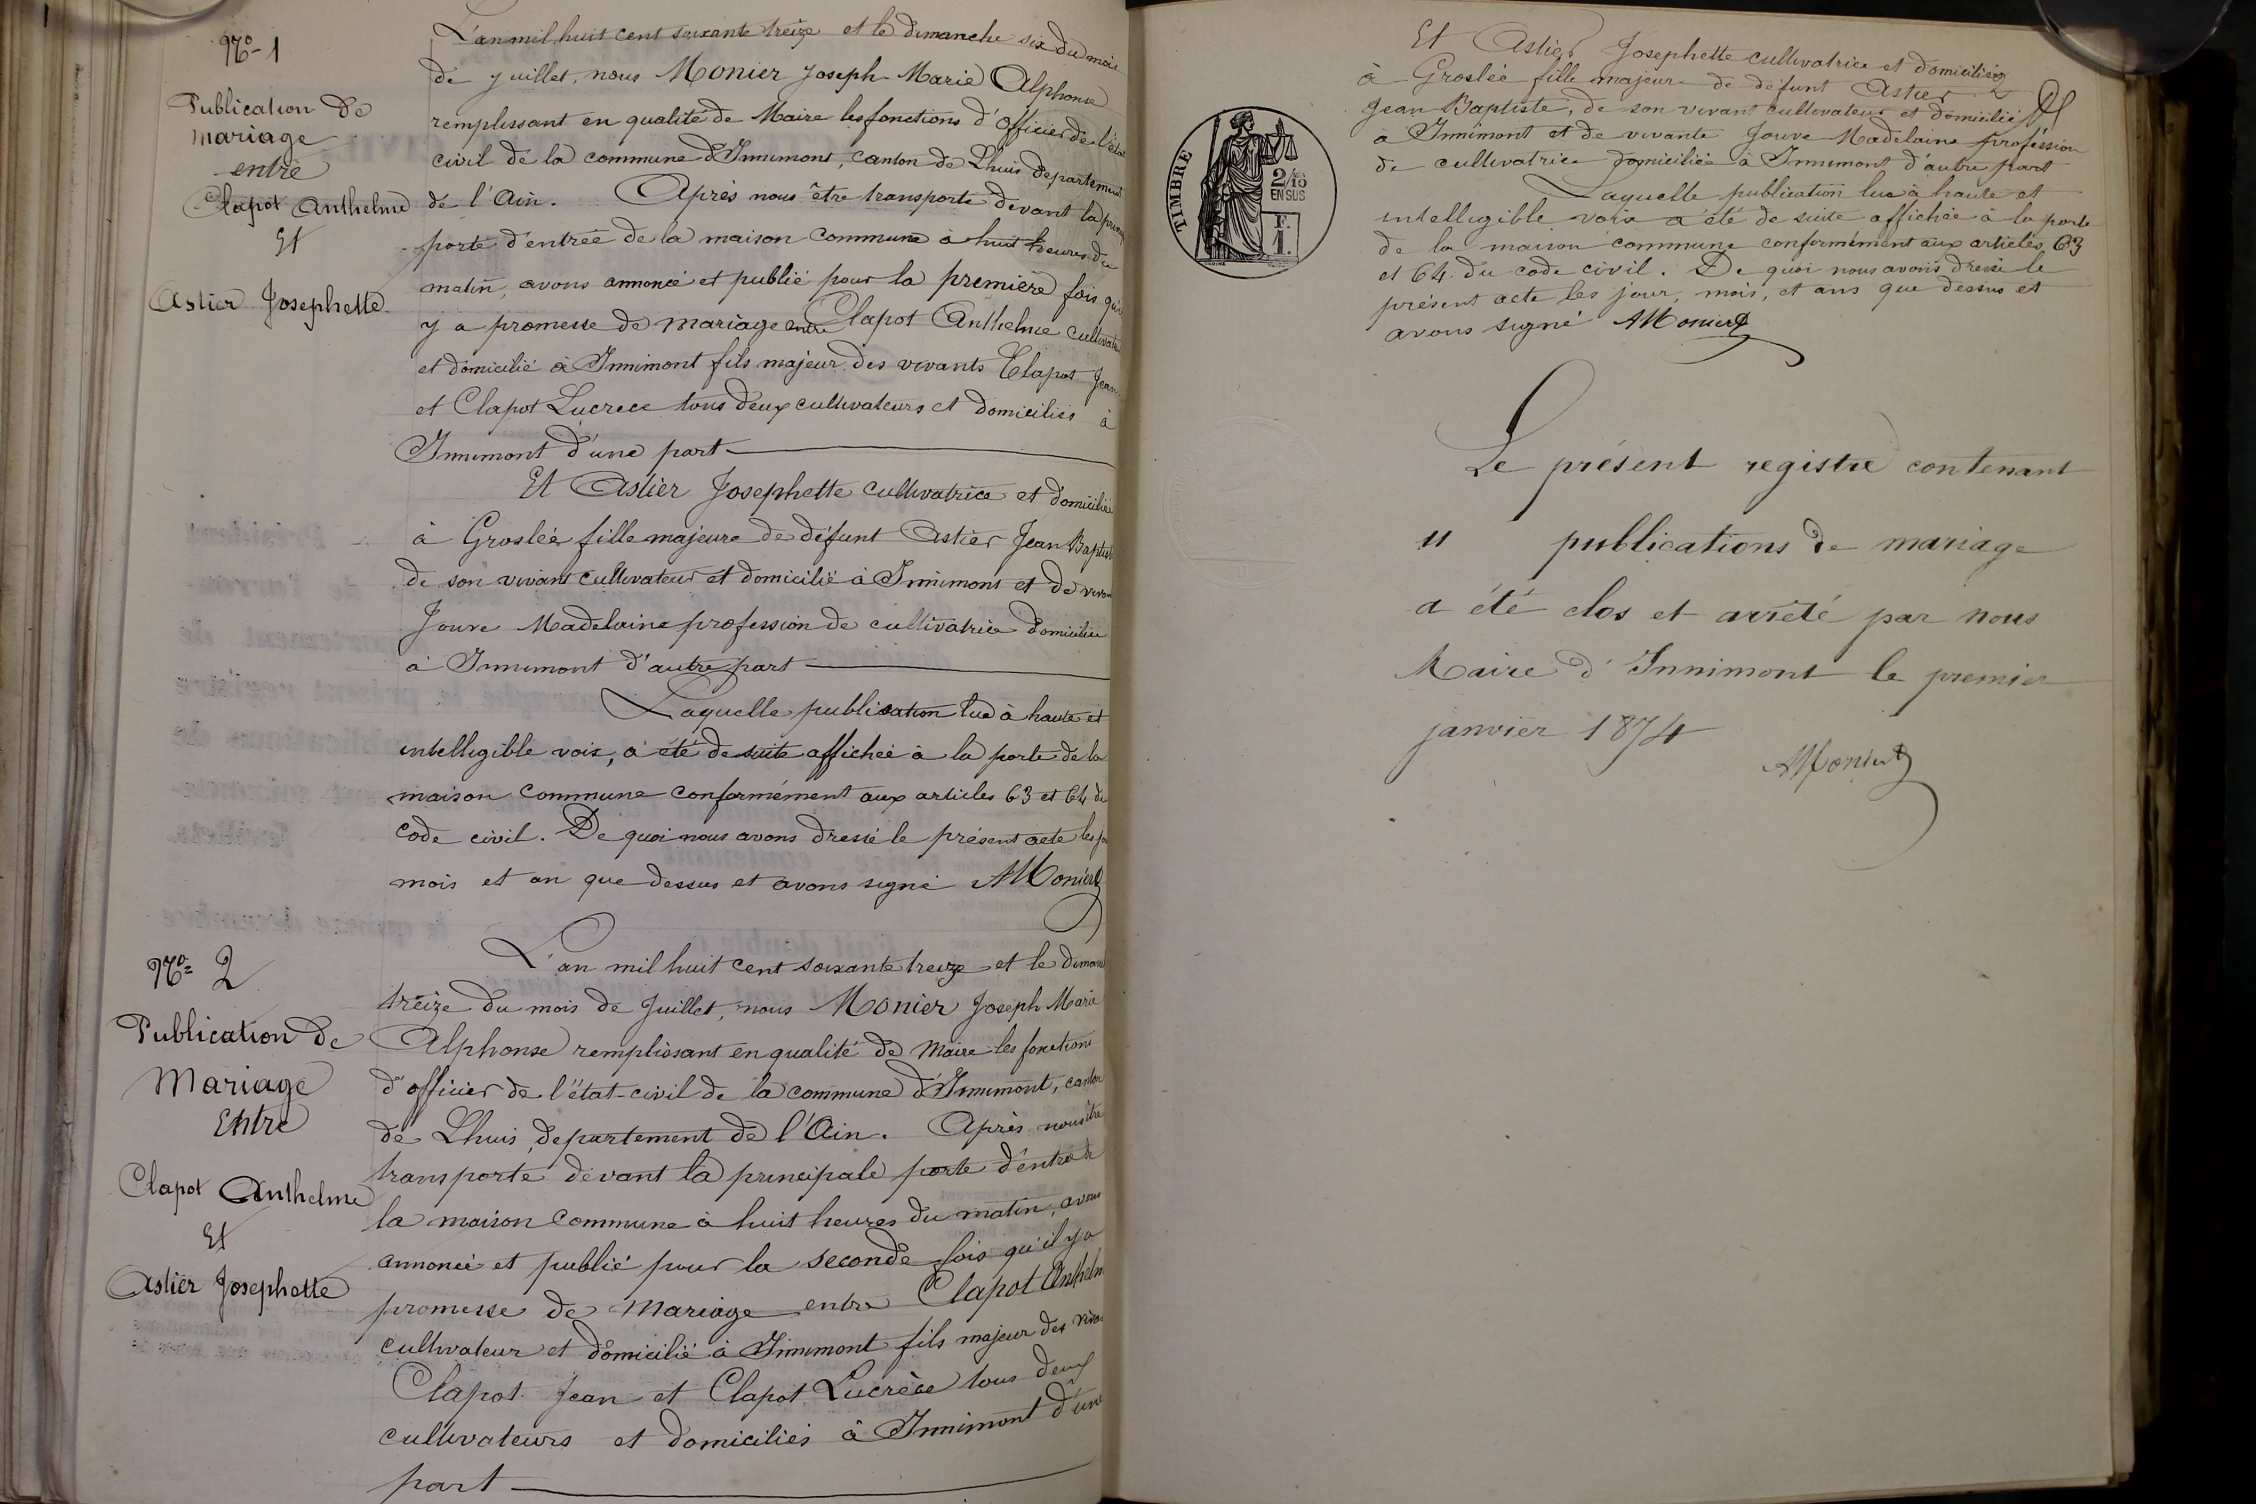 Nº 1
Publication de
mariage
entre
Clapot Anthelme
Et
Astier Josephette
L'an mil huit cent soixante treize et le dimanche six du mois
de Juillet, nous Monier Joseph Marie Alphonse
remplissant en qualité de Maire les fonctions d'officier de l'état
civil de la commune d'Innimont, canton de Lhuis departement
de l'Ain. Après nous être transporté devant la
porte d'entrée de la maison commune à huit heures du
matin, avons annoncé et publié pour la première fois qu'il
y a promesse de mariage entre Clapot Anthelme cultivateur
et domicilié à Innimont fils majeur des vivants Clapot Jean
et Clapot Lucrece tous deux cultivateurs et domiciliés à
Innimont d'une part
Et Astier Josephette cultivatrice et domiciliée
à Groslée fille majeure de défunt Astier Jean Baptiste
de son vivant cultivateur et domicilié à Innimont et de vivante
Jouve Madelaine profession de cultivatrice domiciliée
à Innimont d'autre part
Laquelle publication lue à haute et
intelligible voix, a été de suite affichée à la porte de la
maison commune conformément aux articles 63 et 64 du
code civil. De quoi nous avons dressé le présent acte les jour
mois et an que dessus et avons signé AMonier
Nº 2
Publication de
Mariage
Entre
Clapot Anthelme
Et
Astier Josephette
L'an mil huit cent soixante treize et le dimanche
treize du mois de Juillet, nous Monier Joseph Marie
Alphonse remplissant en qualité de Maire les fonctions
d'officier de l'état-civil de la commune d'Innimont, canton
de Lhuis, departement de l'Ain. Après nous être
transporté devant la principale porte d'entrée de
la maison commune à huit heures du matin, avons
annoncé et publié pour la seconde fois qu'il y a
promesse de mariage entre Clapot Anthelme
cultivateur et domicilié à Innimont fils majeur des vivants
Clapot Jean et Clapot Lucrèce tous deux
cultivateurs et domiciliés à Innimont d'une
part
TIMBRE
2/10
EN SUS
F.
1.
Et Astier Josephette cultivatrice et domiciliée
à Groslée fille majeure de défunt Astier
Jean Baptiste, de son vivant cultivateur et domicilié
à Innimont et de vivante Jouve Madelaine profession
de cultivatrice domiciliée à Innimont d'autre part
Laquelle publication lue à haute et
intelligible voix a été de suite affichée à la porte
de la maison commune conformément aux articles 63
et 64 du code civil. De quoi nous avons dressé le
présent acte les jour, mois, et ans que dessus et
avons signé AMonier
Le présent registre contenant
11 publications de mariage
a été clos et arrêté par nous
Maire d'Innimont le premier
janvier 1874
AMonier